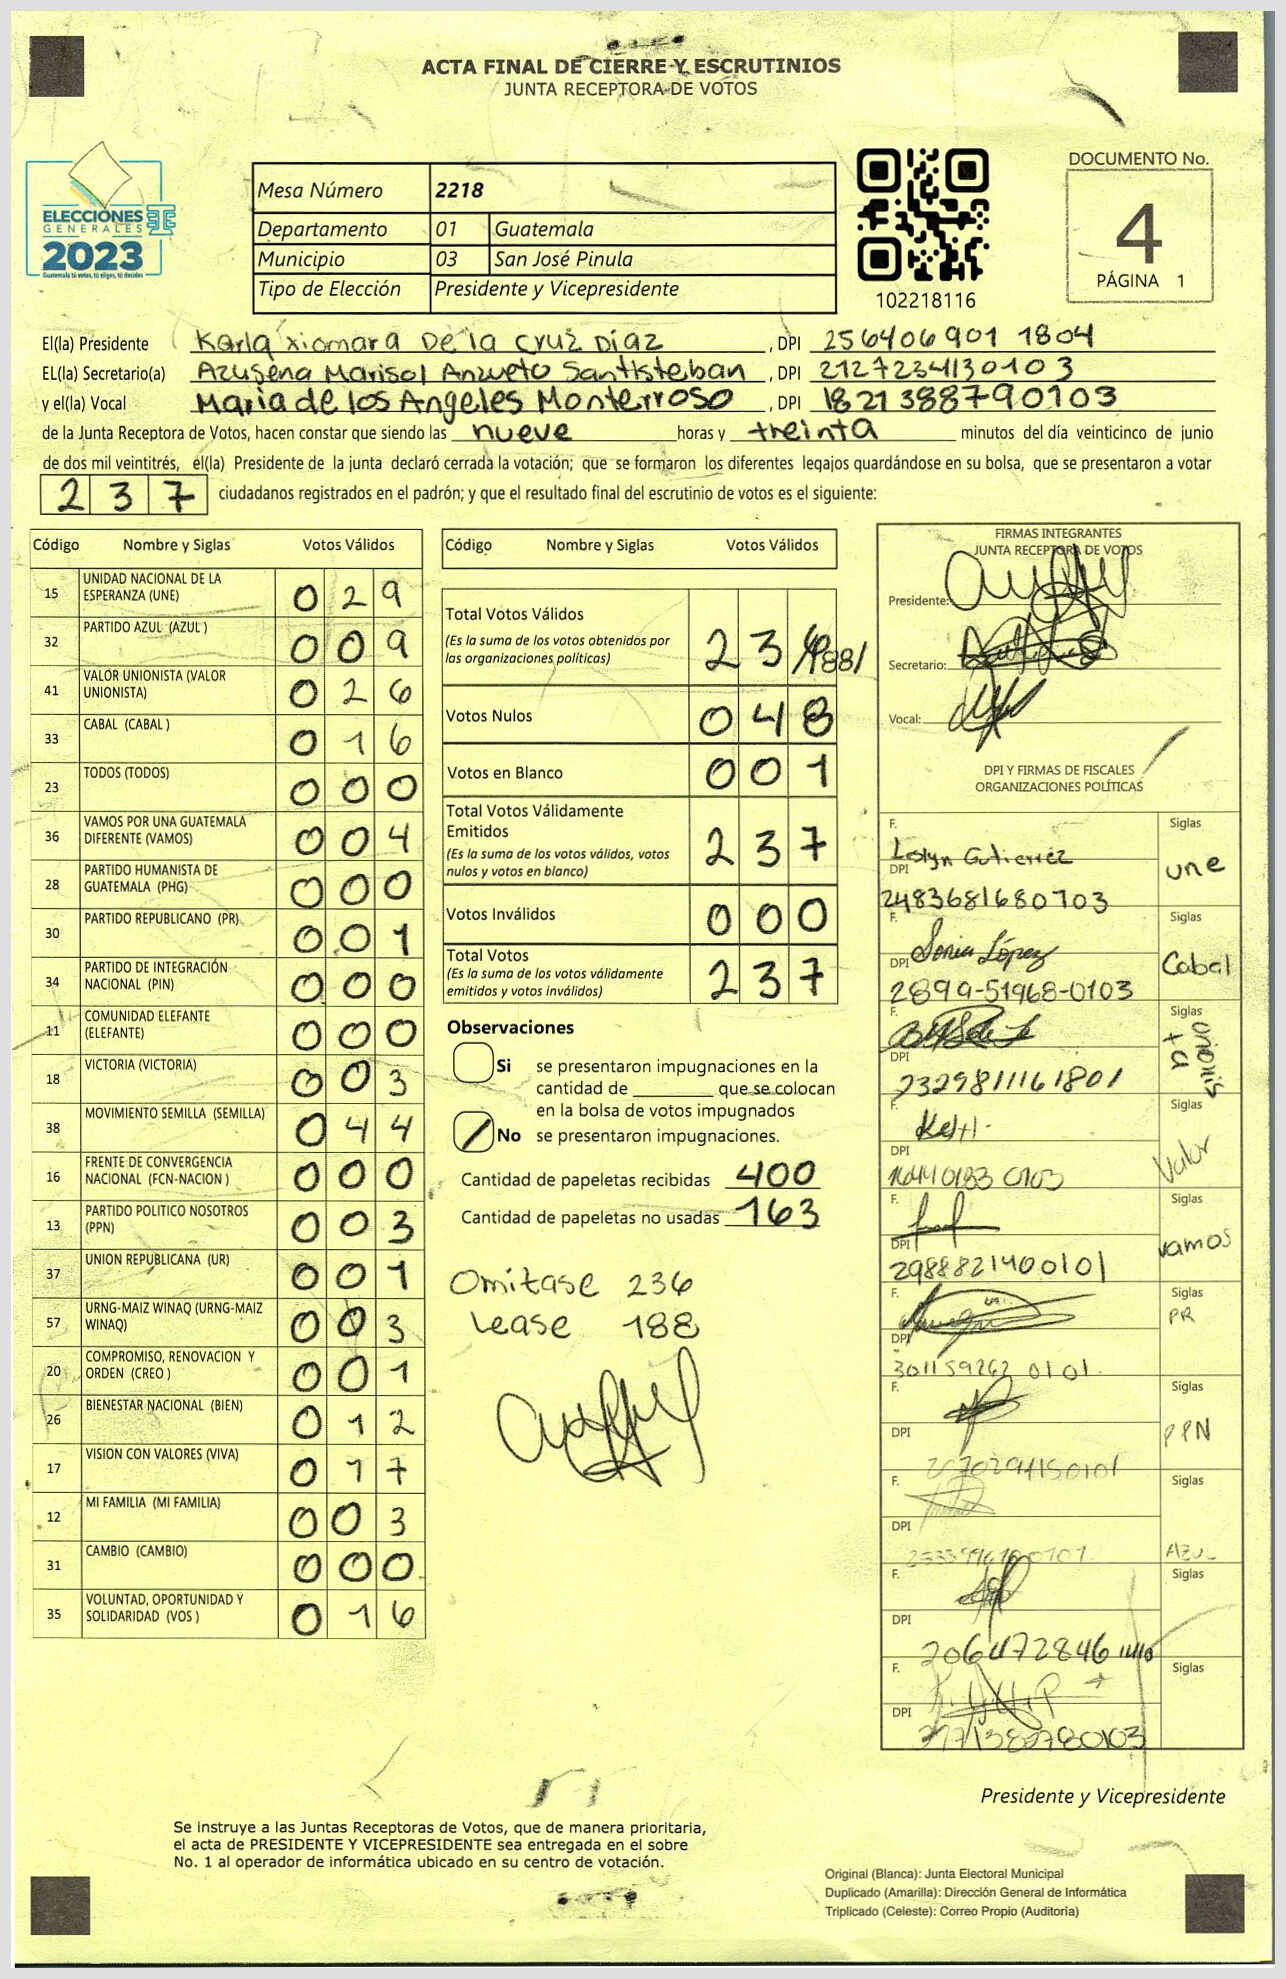 ACTA FINAL DE CIERRE Y ESCRUTINIOS
JUNTA RECEPTORA DE VOTOS
ELECCIONES
GENERALES
2023
Guatemala tú votas, tú eliges, tú decides
Mesa Número 2218
Departamento 01 Guatemala
Municipio 03 San José Pinula
Tipo de Elección Presidente y Vicepresidente
102218116
DOCUMENTO No.
4
PÁGINA 1
El(la) Presidente Karla Xiomara De la Cruz Díaz, DPI 256406901 1804
EL(la) Secretario(a) Azusena Marisol Anzueto Santisteban, DPI 2127234130103
y el(la) Vocal Maria de los Angeles Monterroso, DPI 1821388790103
de la Junta Receptora de Votos, hacen constar que siendo las nueve horas y treinta minutos del día veinticinco de junio
de dos mil veintitrés, el(la) Presidente de la junta declaró cerrada la votación; que se formaron los diferentes legajos guardándose en su bolsa, que se presentaron a votar
237 ciudadanos registrados en el padrón; y que el resultado final del escrutinio de votos es el siguiente:
Código Nombre y Siglas Votos Válidos
15 UNIDAD NACIONAL DE LA ESPERANZA (UNE) 029
32 PARTIDO AZUL (AZUL ) 009
41 VALOR UNIONISTA (VALOR UNIONISTA) 026
33 CABAL (CABAL ) 016
23 TODOS (TODOS) 000
36 VAMOS POR UNA GUATEMALA DIFERENTE (VAMOS) 004
28 PARTIDO HUMANISTA DE GUATEMALA (PHG) 000
30 PARTIDO REPUBLICANO (PR) 001
34 PARTIDO DE INTEGRACIÓN NACIONAL (PIN) 000
11 COMUNIDAD ELEFANTE (ELEFANTE) 000
18 VICTORIA (VICTORIA) 003
38 MOVIMIENTO SEMILLA (SEMILLA) 044
16 FRENTE DE CONVERGENCIA NACIONAL (FCN-NACION ) 000
13 PARTIDO POLITICO NOSOTROS (PPN) 003
37 UNION REPUBLICANA (UR) 001
57 URNG-MAIZ WINAQ (URNG-MAIZ WINAQ) 003
20 COMPROMISO, RENOVACION Y ORDEN (CREO ) 001
26 BIENESTAR NACIONAL (BIEN) 012
17 VISION CON VALORES (VIVA) 017
12 MI FAMILIA (MI FAMILIA) 003
31 CAMBIO (CAMBIO) 000
35 VOLUNTAD, OPORTUNIDAD Y SOLIDARIDAD (VOS ) 016
Código Nombre y Siglas Votos Válidos
Total Votos Válidos
(Es la suma de los votos obtenidos por
las organizaciones políticas)
Votos Nulos 048
Votos en Blanco 001
Total Votos Válidamente
Emitidos 237
(Es la suma de los votos válidos, votos
nulos y votos en blanco)
Votos Inválidos 000
Total Votos 237
(Es la suma de los votos válidamente
emitidos y votos inválidos)
Observaciones
Si se presentaron impugnaciones en la
cantidad de ________ que se colocan
en la bolsa de votos impugnados
No se presentaron impugnaciones.
Cantidad de papeletas recibidas 400
Cantidad de papeletas no usadas 163
Omitase 236
Lease 188
FIRMAS INTEGRANTES
JUNTA RECEPTORA DE VOTOS
Presidente:
Secretario:
Vocal:
DPI Y FIRMAS DE FISCALES
ORGANIZACIONES POLÍTICAS
F. Gutierrez Siglas une
DPI 2483681680703
F. Sonia López Siglas Cabal
DPI 2899-51968-0103
F. Siglas
DPI 2329811161801
F. Siglas Valor
DPI
F. Siglas vamos
DPI 2988821400101
F. Siglas PR
DPI 301159262 0101
F. Siglas PPN
DPI
F. Siglas AZUL
DPI
F. Siglas
DPI
F. Siglas
DPI
Presidente y Vicepresidente
Se instruye a las Juntas Receptoras de Votos, que de manera prioritaria,
el acta de PRESIDENTE Y VICEPRESIDENTE sea entregada en el sobre
No. 1 al operador de informática ubicado en su centro de votación.
Original (Blanca): Junta Electoral Municipal
Duplicado (Amarilla): Dirección General de Informática
Triplicado (Celeste): Correo Propio (Auditoría)